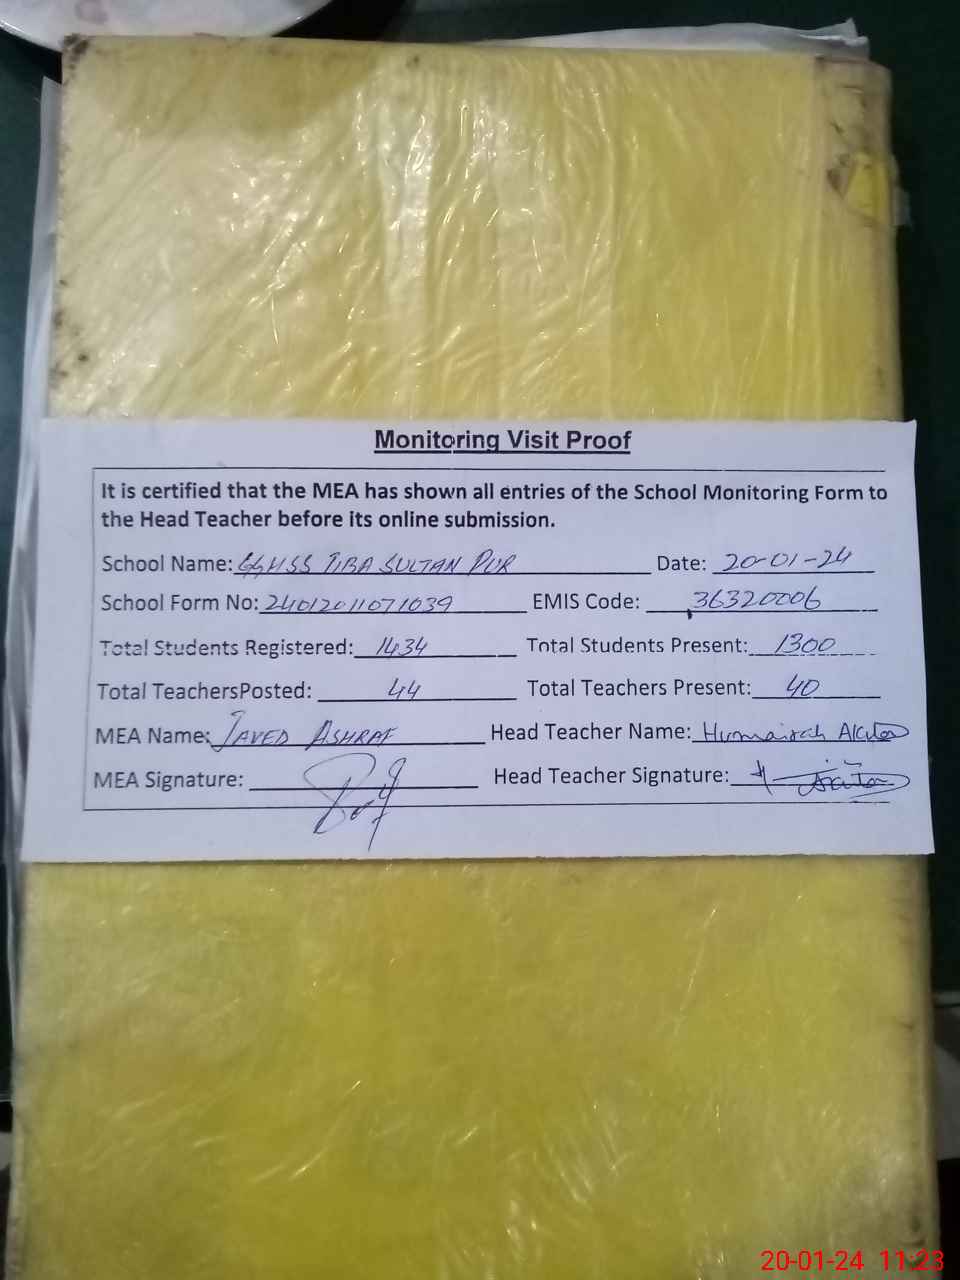 Monitoring Visit Proof
It is certified that the MEA has shown all entries of the School Monitoring Form to
the Head Teacher before its online submission.
School Name: GGHSS TIBA SULTAN PUR Date: 20-01-24
School Form No: 24012011071039 EMIS Code: 36320006
Total Students Registered: 1434 Total Students Present: 1300
Total TeachersPosted: 44 Total Teachers Present: 40
MEA Name: JAVED ASHRAF Head Teacher Name: Humairah
MEA Signature: Head Teacher Signature:
20-01-24 11:23